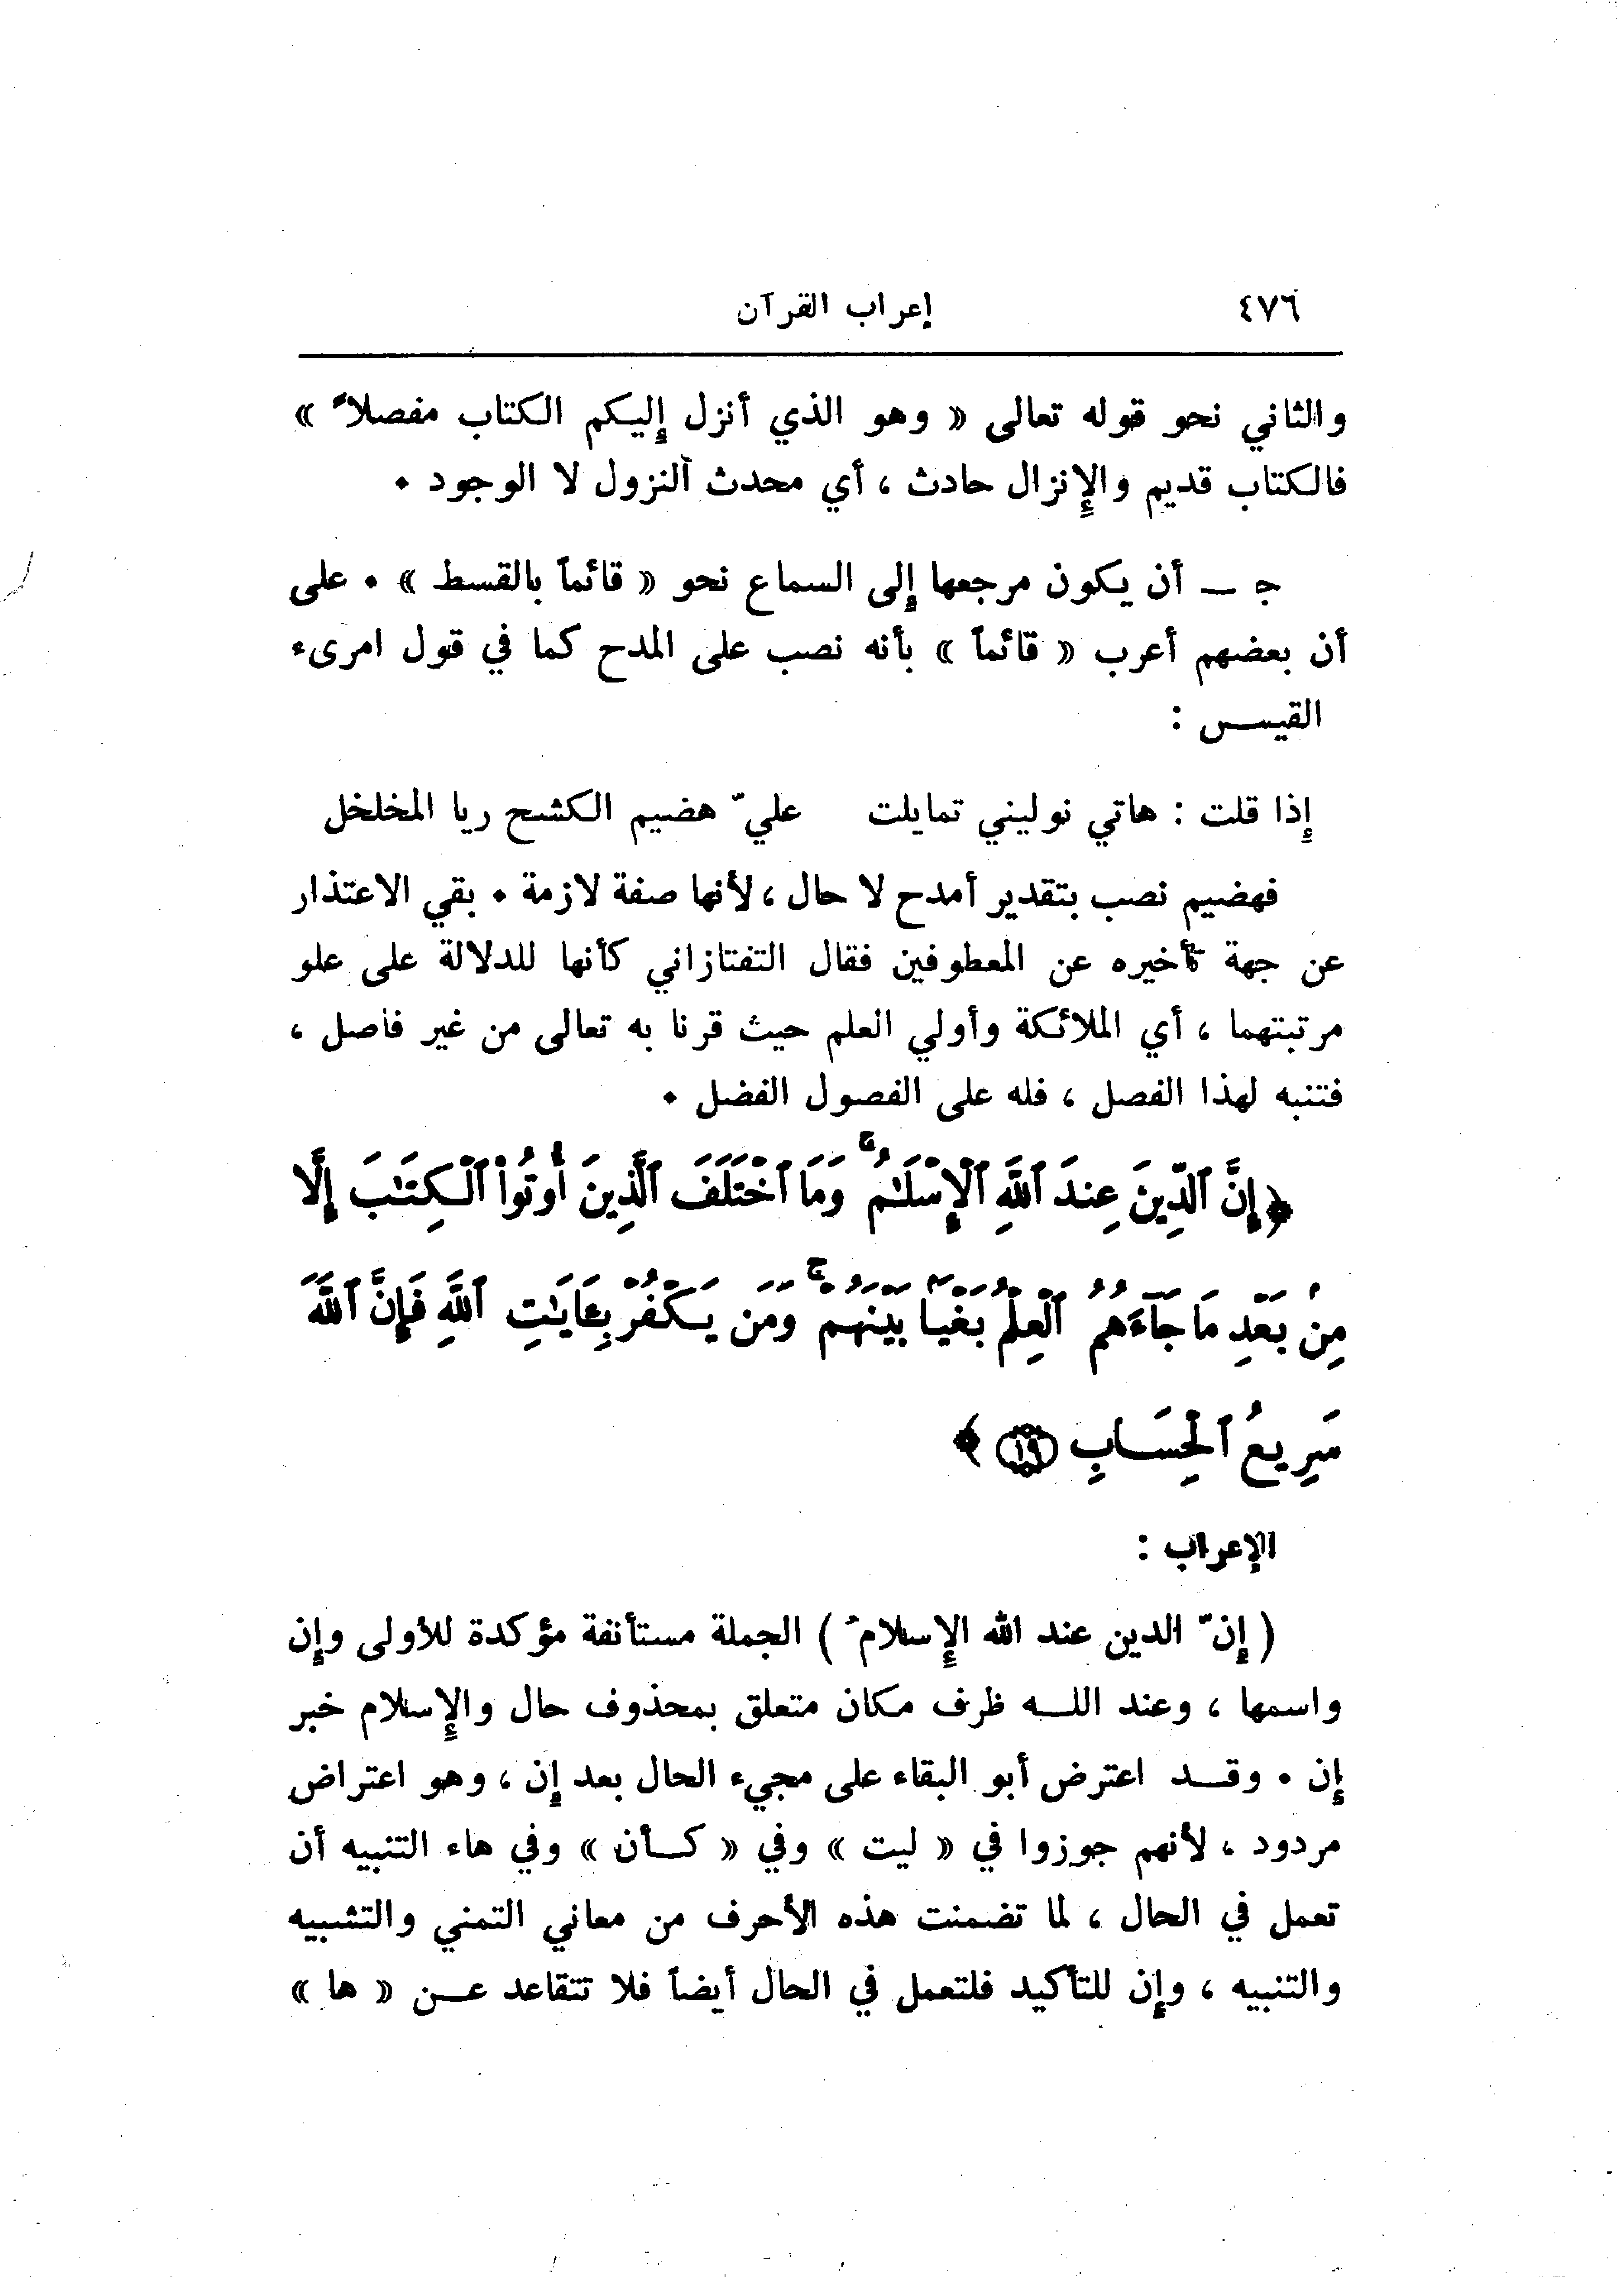 ٤٧٦ إعراب القرآن
والثاني نحو قوله تعالى « وهو الذي أنزل إليكم الكتاب مفصلاً »
فالكتاب قديم والإنزال حادث ، أي محدث النزول لا الوجود .
ج — أن يكون مرجعها إلى السماع نحو « قائماً بالقسط » . على
أن بعضهم أعرب « قائماً » بأنه نصب على المدح كما في قول امرىء
القيس :
إذا قلت : هاتي نوليني تمايلت عليّ هضيم الكشح ريا المخلخل
فهضيم نصب بتقدير أمدح لا حال ، لأنها صفة لازمة . بقي الاعتذار
عن جهة تأخيره عن المعطوفين فقال التفتازاني كأنها للدلالة على علو
مرتبتهما ، أي الملائكة وأولي العلم حيث قرنا به تعالى من غير فاصل ،
فتنبه لهذا الفصل ، فله على الفصول الفضل .
﴿ إِنَّ ٱلدِّينَ عِندَ ٱللَّهِ ٱلْإِسْلَٰمُ ۗ وَمَا ٱخْتَلَفَ ٱلَّذِينَ أُوتُوا۟ ٱلْكِتَٰبَ إِلَّا
مِنۢ بَعْدِ مَا جَآءَهُمُ ٱلْعِلْمُ بَغْيًۢا بَيْنَهُمْ ۗ وَمَن يَكْفُرْ بِـَٔايَٰتِ ٱللَّهِ فَإِنَّ ٱللَّهَ
سَرِيعُ ٱلْحِسَابِ ١٩ ﴾
الإعراب :
( إنّ الدين عند الله الإسلامُ ) الجملة مستأنفة مؤكدة للأولى وإن
واسمها ، وعند اللــه ظرف مكان متعلق بمحذوف حال والإسلام خبر
إن . وقــد اعترض أبو البقاء على مجيء الحال بعد إن ، وهو اعتراض
مردود ، لأنهم جوزوا في « ليت » وفي « كــأن » وفي هاء التنبيه أن
تعمل في الحال ، لما تضمنت هذه الأحرف من معاني التمني والتشبيه
والتنبيه ، وإن للتأكيد فلتعمل في الحال أيضاً فلا تتقاعد عــن « ها »